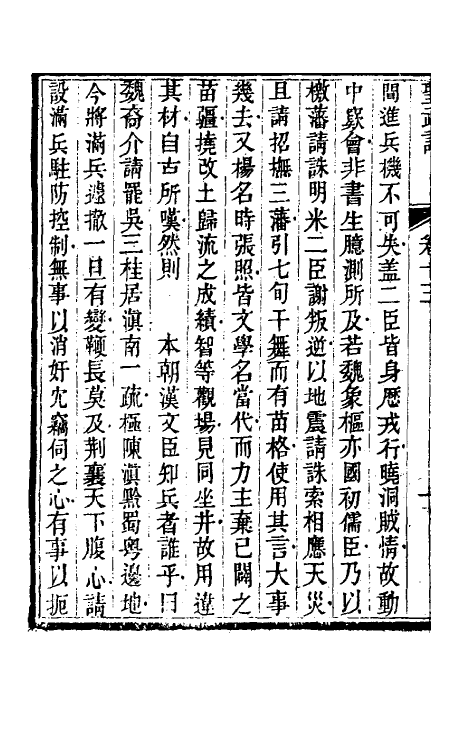 聖武記 卷十三
間進兵機不可失蓋二臣皆身歷戎行曉洞賊情故動
中窾會非書生臆測所及若魏象樞亦國初儒臣乃以
檄藩請誅明米二臣謝叛逆以地震請誅索相應天災
且請招撫三藩引七旬干舞而有苗格使用其言大事
幾去又楊名時張照皆文學名當代而力主棄已闢之
苗疆撓改土歸流之成績智等觀場見同坐井故用違
其材自古所嘆然則 本朝漢文臣知兵者誰乎曰
魏裔介請罷吳三桂居滇南一疏極陳滇黔蜀粵邊地
今將滿兵遽撤一旦有變鞭長莫及荆襄天下腹心請
設滿兵駐防控制無事以消奸宄竊伺之心有事以扼